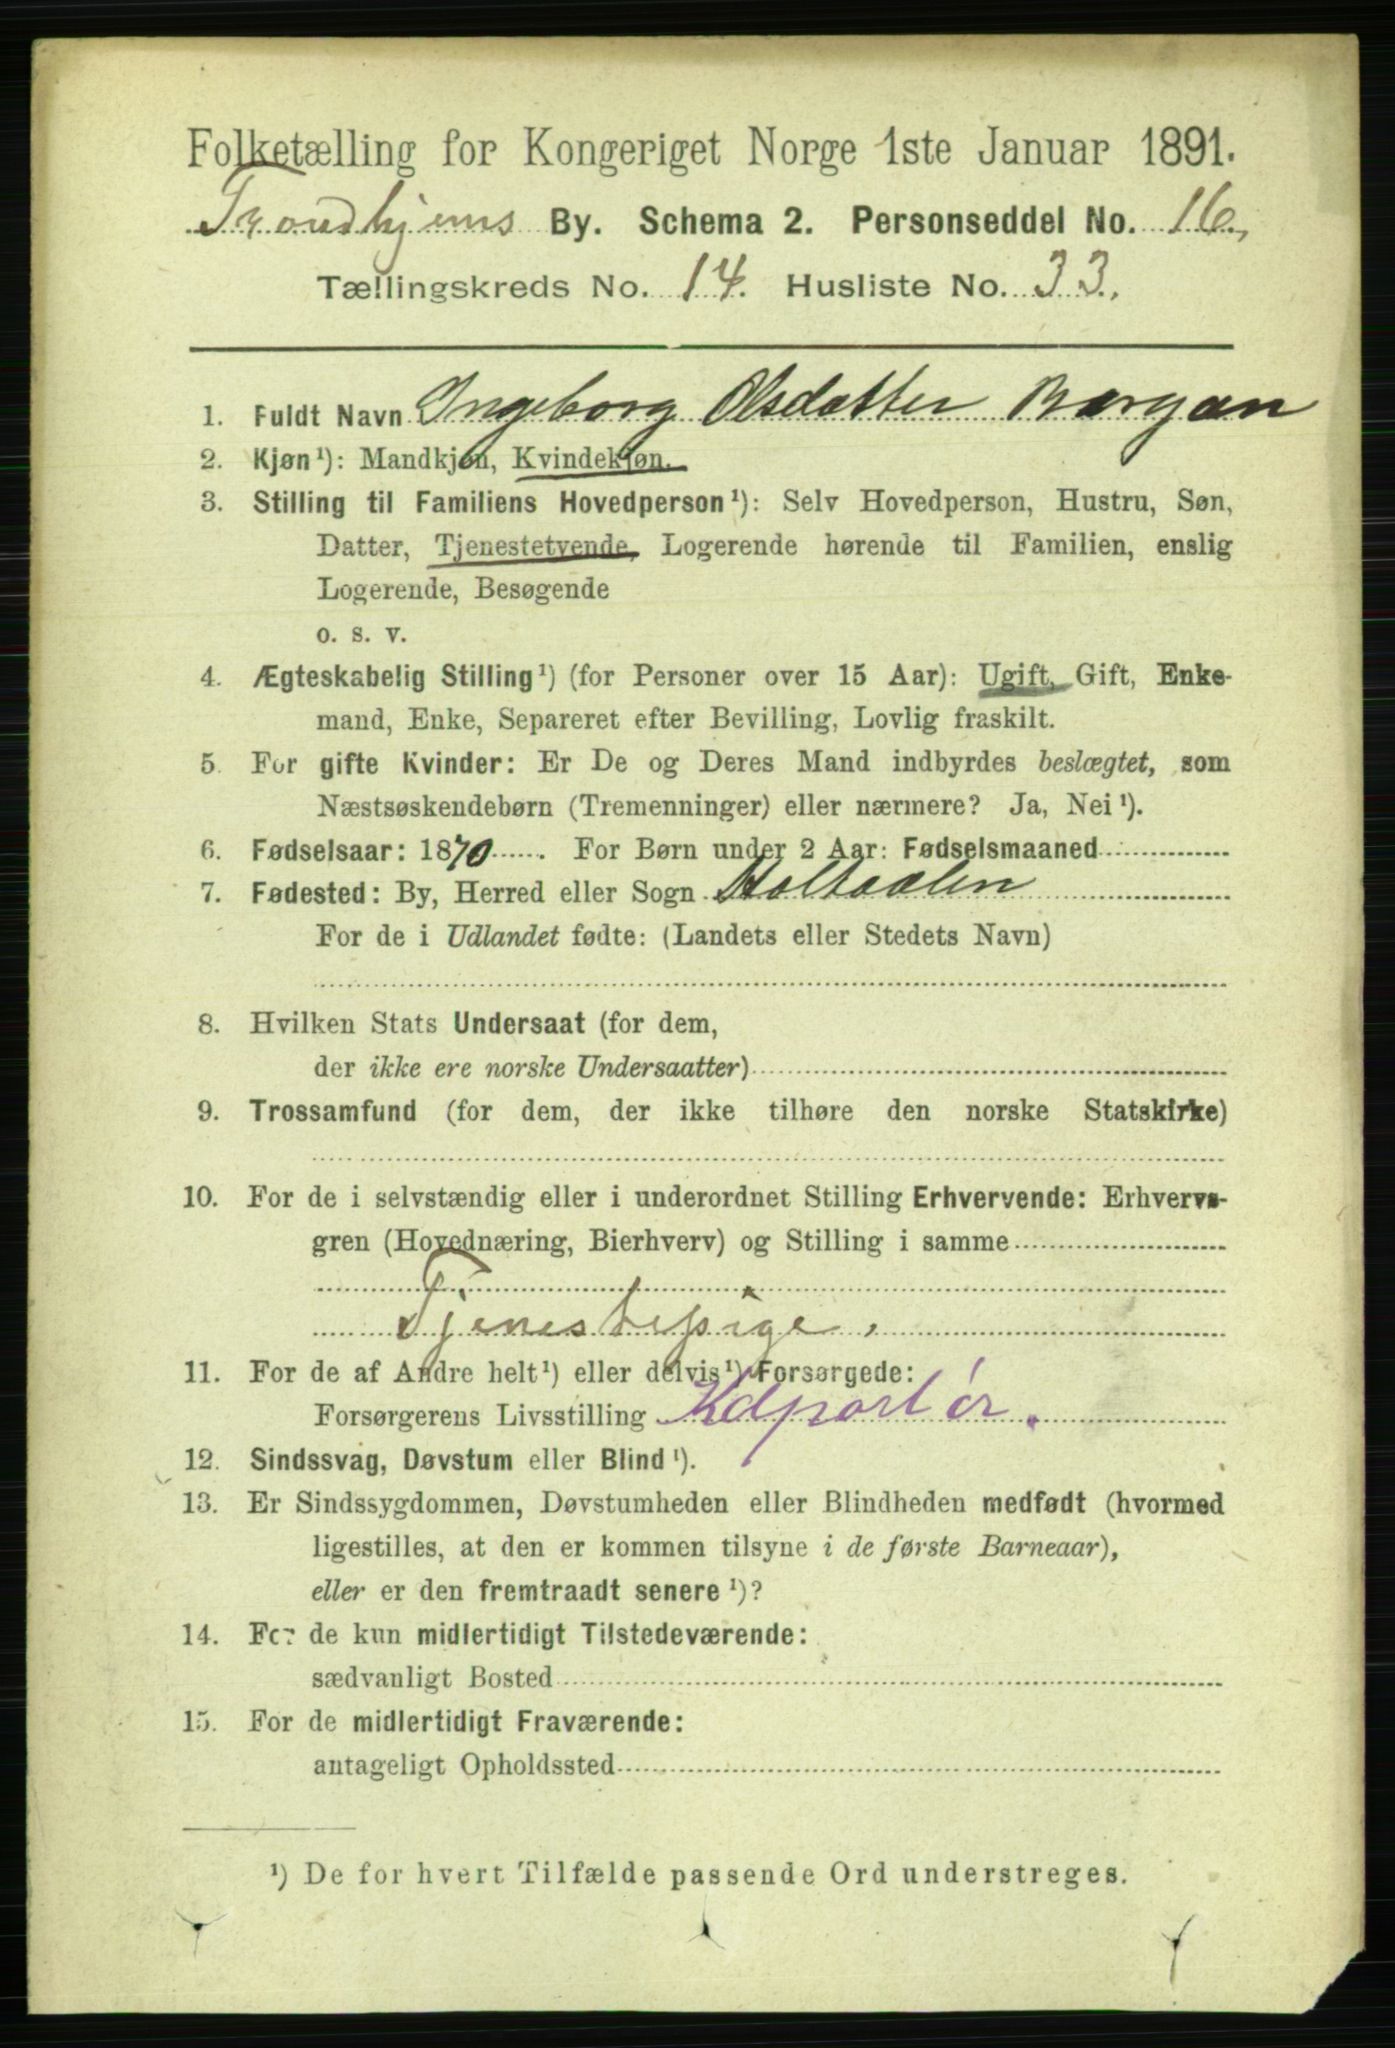 Folketælling for Kongeriget Norge 1ste Januar 1891.
Trondhjems By. Schema 2. Personseddel No. 16.
Tællingskreds No. 14. Husliste No. 33.
1. Fuldt Navn Ingeborg Olsdatter Borgan
2. Kjøn¹): Mandkjøn, Kvindekjøn.
3. Stilling til Familiens Hovedperson¹): Selv Hovedperson, Hustru, Søn,
Datter, Tjenestetyende, Logerende hørende til Familien, enslig
Logerende, Besøgende
o. s. v.
4. Ægteskabelig Stilling¹) (for Personer over 15 Aar): Ugift, Gift, Enke-
mand, Enke, Separeret efter Bevilling, Lovlig fraskilt.
5. For gifte Kvinder: Er De og Deres Mand indbyrdes beslægtet, som
Næstsøskendebørn (Tremenninger) eller nærmere? Ja, Nei¹).
6. Fødselsaar: 1870. For Børn under 2 Aar: Fødselsmaaned
7. Fødested: By, Herred eller Sogn Holtaalen
For de i Udlandet fødte: (Landets eller Stedets Navn)
8. Hvilken Stats Undersaat (for dem,
der ikke ere norske Undersaatter)
9. Trossamfund (for dem, der ikke tilhøre den norske Statskirke)
10. For de i selvstændig eller i underordnet Stilling Erhvervende: Erhvervs-
gren (Hovednæring, Bierhverv) og Stilling i samme
Tjenestepige.
11. For de af Andre helt¹) eller delvis¹) Forsørgede:
Forsørgerens Livsstilling Kolportør.
12. Sindssvag, Døvstum eller Blind¹).
13. Er Sindssygdommen, Døvstumheden eller Blindheden medfødt (hvormed
ligestilles, at den er kommen tilsyne i de første Barneaar),
eller er den fremtraadt senere¹)?
14. For de kun midlertidigt Tilstedeværende:
sædvanligt Bosted
15. For de midlertidigt Fraværende:
antageligt Opholdssted
¹) De for hvert Tilfælde passende Ord understreges.